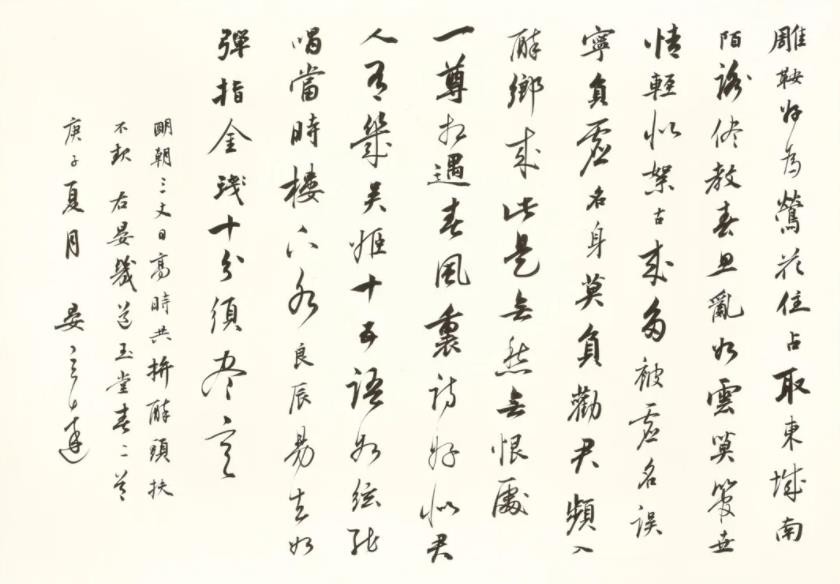 雕鞍好為鶯花住占取東城南
陌路儘教春思亂如雲莫管世
情輕似絮古來多被虛名誤
寧負虛名身莫負勸君頻入
醉鄉來此是無愁無恨處
一尊相遇春風裏詩好似君
人有幾吳姬十五語如絃能
唱當時樓下水良辰易去如
彈指金琖十分須盡意
明朝三丈日高時共拚醉頭扶
不起 右晏幾道玉堂春二首
庚子夏月 晏